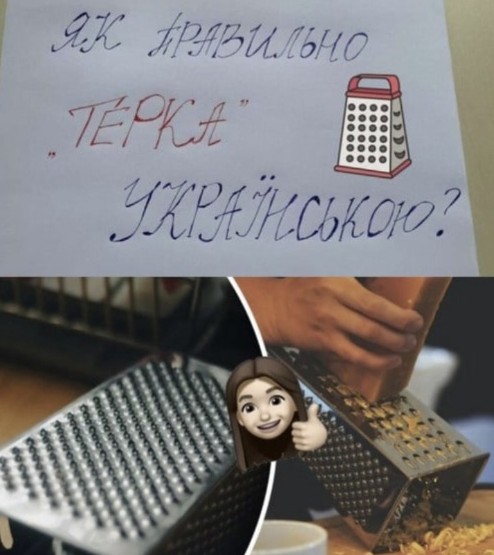 ЯК ПРАВИЛЬНО
„ТЁРКА"
УКРАЇНСЬКОЮ?